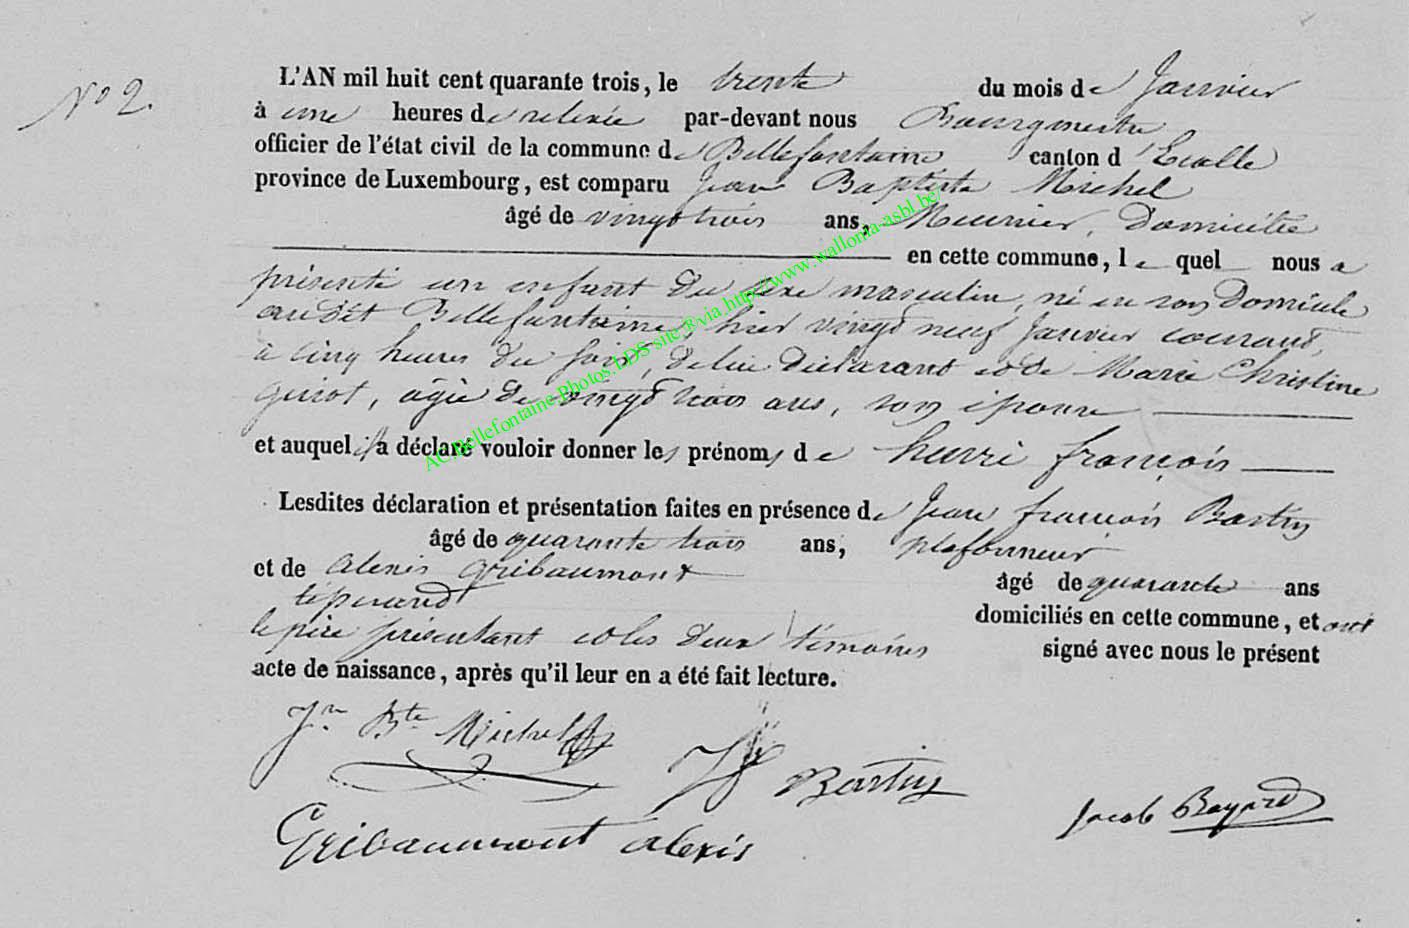 N° 2.
L'AN mil huit cent quarante trois, le trente du mois de Janvier
à une heures de relevée par-devant nous Bourgmestre
officier de l'état civil de la commune de Bellefontaine canton d'Etalle
province de Luxembourg, est comparu Jean Baptiste Michel
âgé de vingt trois ans, Meunier, Domicilié
en cette commune, le quel nous a
présenté un enfant du sexe masculin, né en son Domicile
audit Bellefontaine, hier vingt neuf Janvier courant,
à cinq heures du soir, de lui déclarant et de Marie Christine
guiot, agée de vingt trois ans, son épouse
et auquel il a déclaré vouloir donner les prénoms de henri françois
Lesdites déclaration et présentation faites en présence de Jean françois Bastin
âgé de quarante trois ans, plafonneur
et de alexis Gribaumont âgé de quarante ans
tisserand domiciliés en cette commune, et ont
le père présentant et les deux témoins signé avec nous le présent
acte de naissance, après qu'il leur en a été fait lecture.
Jn Bte Michel
Jf Bastin
Jacob Bayard
Gribaumont alexis
AC.Bellefontaine.Photos.LDS site R via http://www.wallonia-asbl.be/